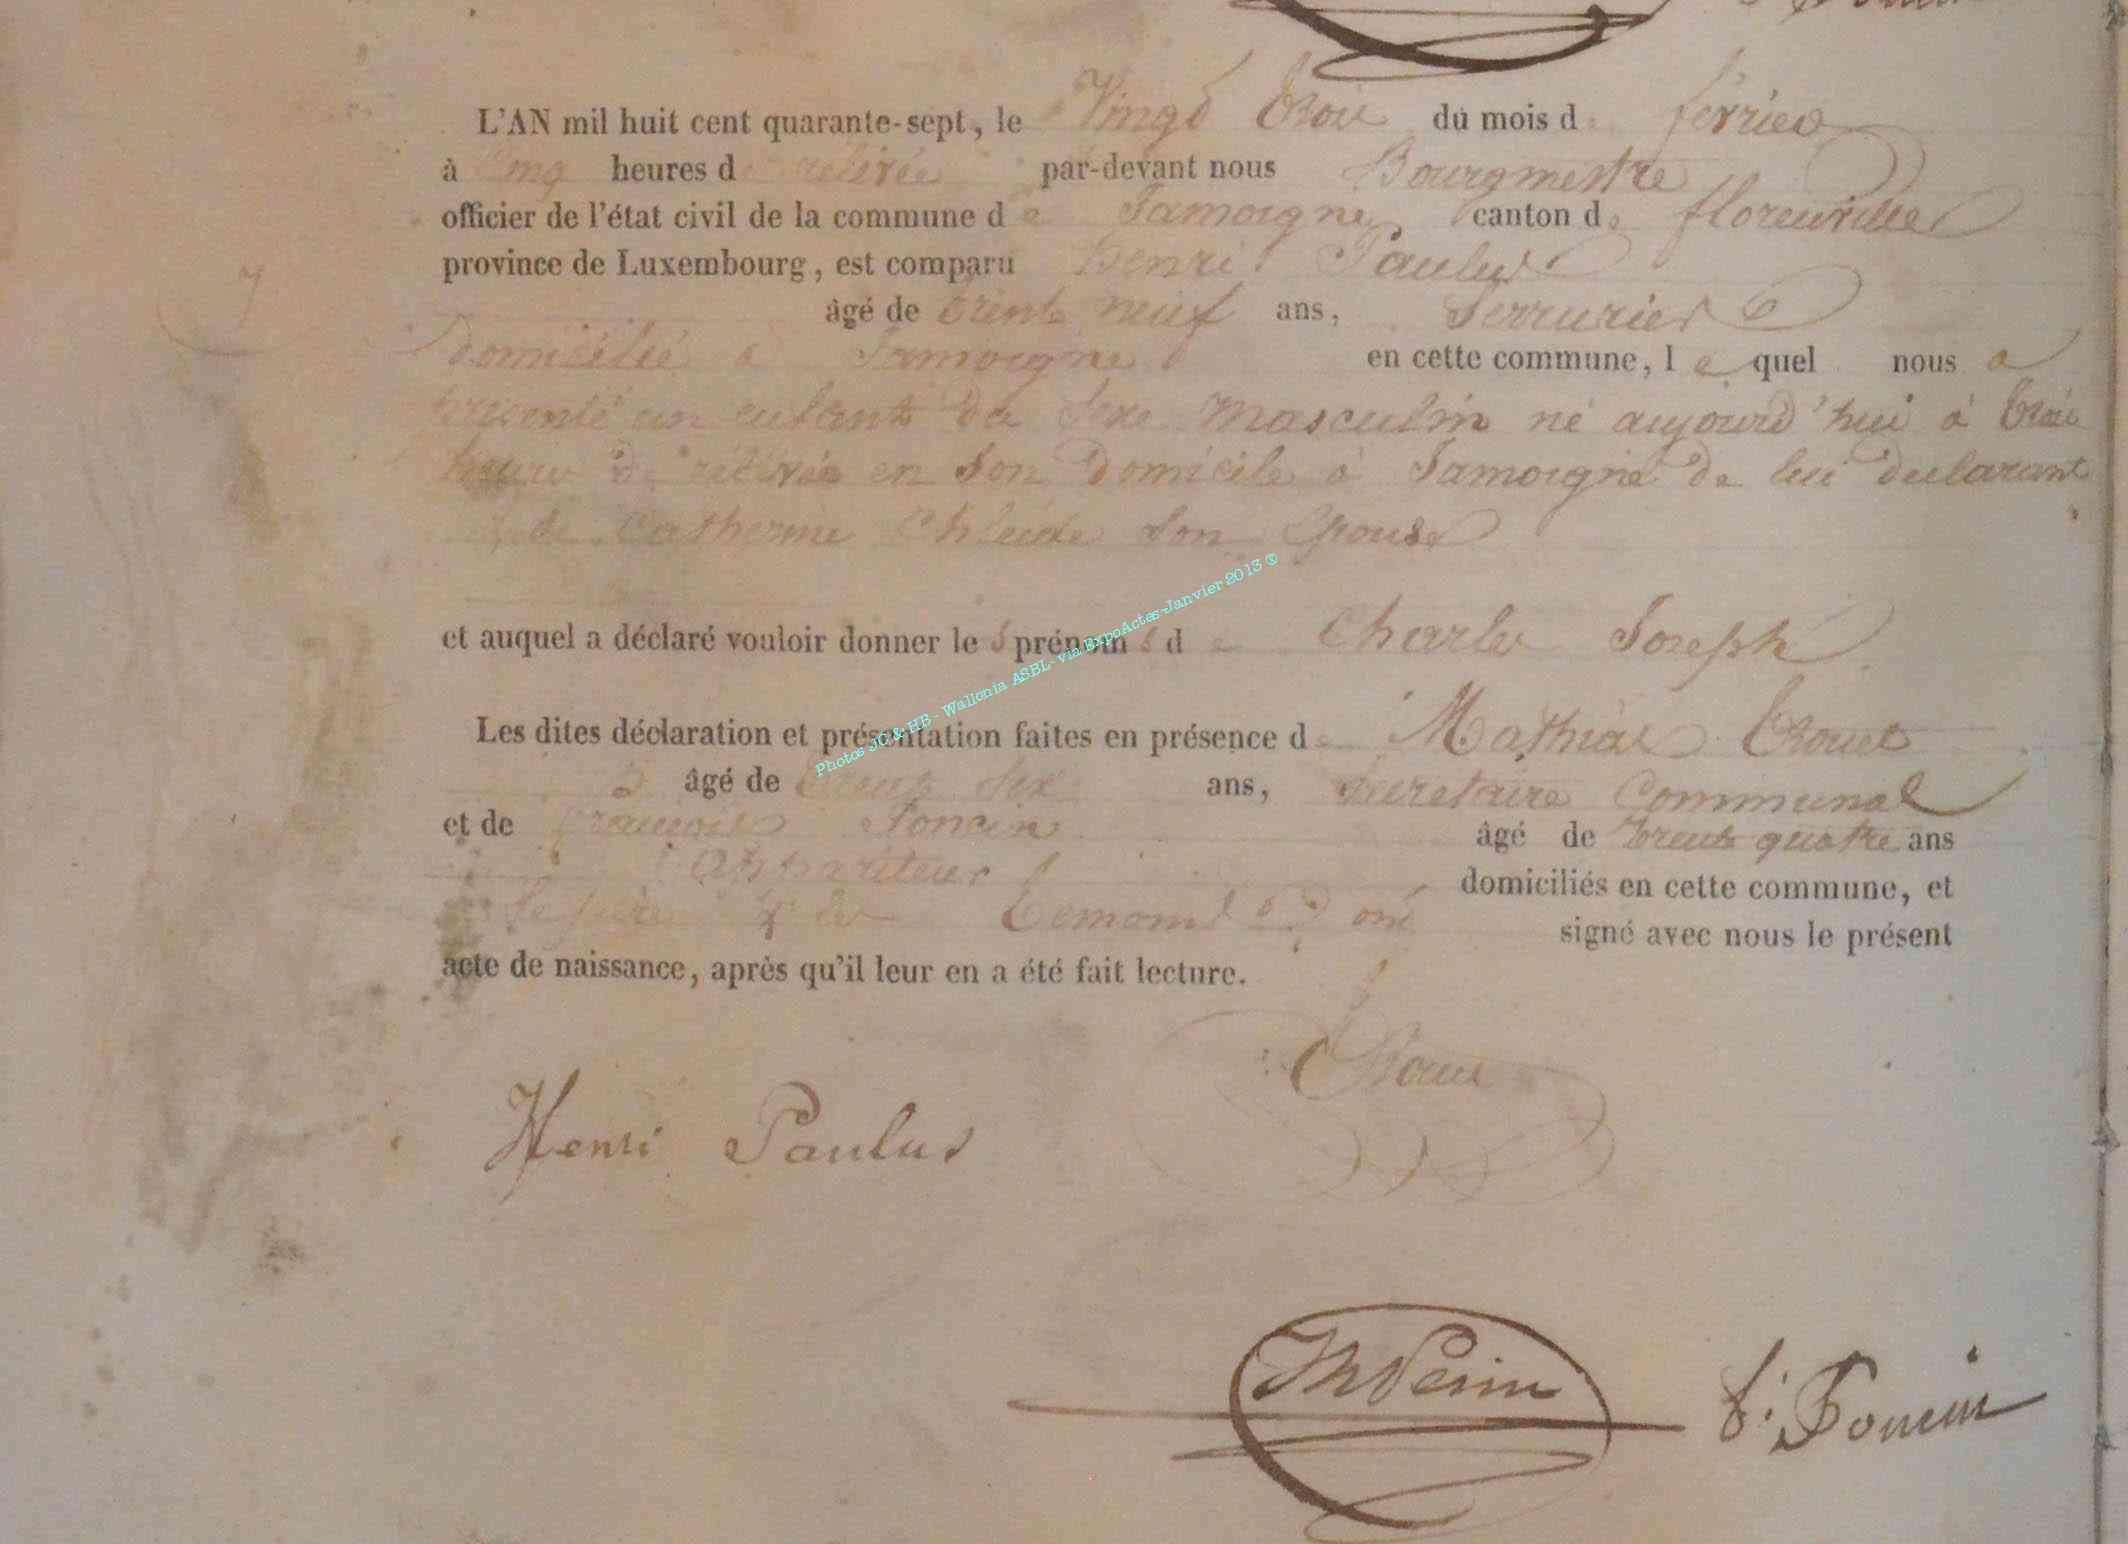 L'AN mil huit cent quarante-sept, le Vingt trois du mois d fevrier
à cinq heures de relevée par-devant nous Bourgmestre
officier de l'état civil de la commune de Jamoigne canton de florenville
province de Luxembourg, est comparu Henri Paulus
7
âgé de trente neuf ans, Serrurier
domicilié à Jamoigne en cette commune, lequel nous a
présenté un enfant du sexe masculin né aujourd'hui à trois
heures de rélévée en son domicile à Jamoigne de lui declarant
& de Catherine son Epouse
et auquel a déclaré vouloir donner les prénoms de Charles Joseph
Les dites déclaration et présentation faites en présence de Mathias
âgé de trente six ans, Secretaire Communal
et de françois Poncin âgé de trente quatre ans
appariteur domiciliés en cette commune, et
le père & les temoins ont signé avec nous le présent
acte de naissance, après qu'il leur en a été fait lecture.
Henri Paulus
Perin
f. Poncin
Photos JC & HB - Wallonia ASBL - via ExpoActes-Janvier 2013 ®